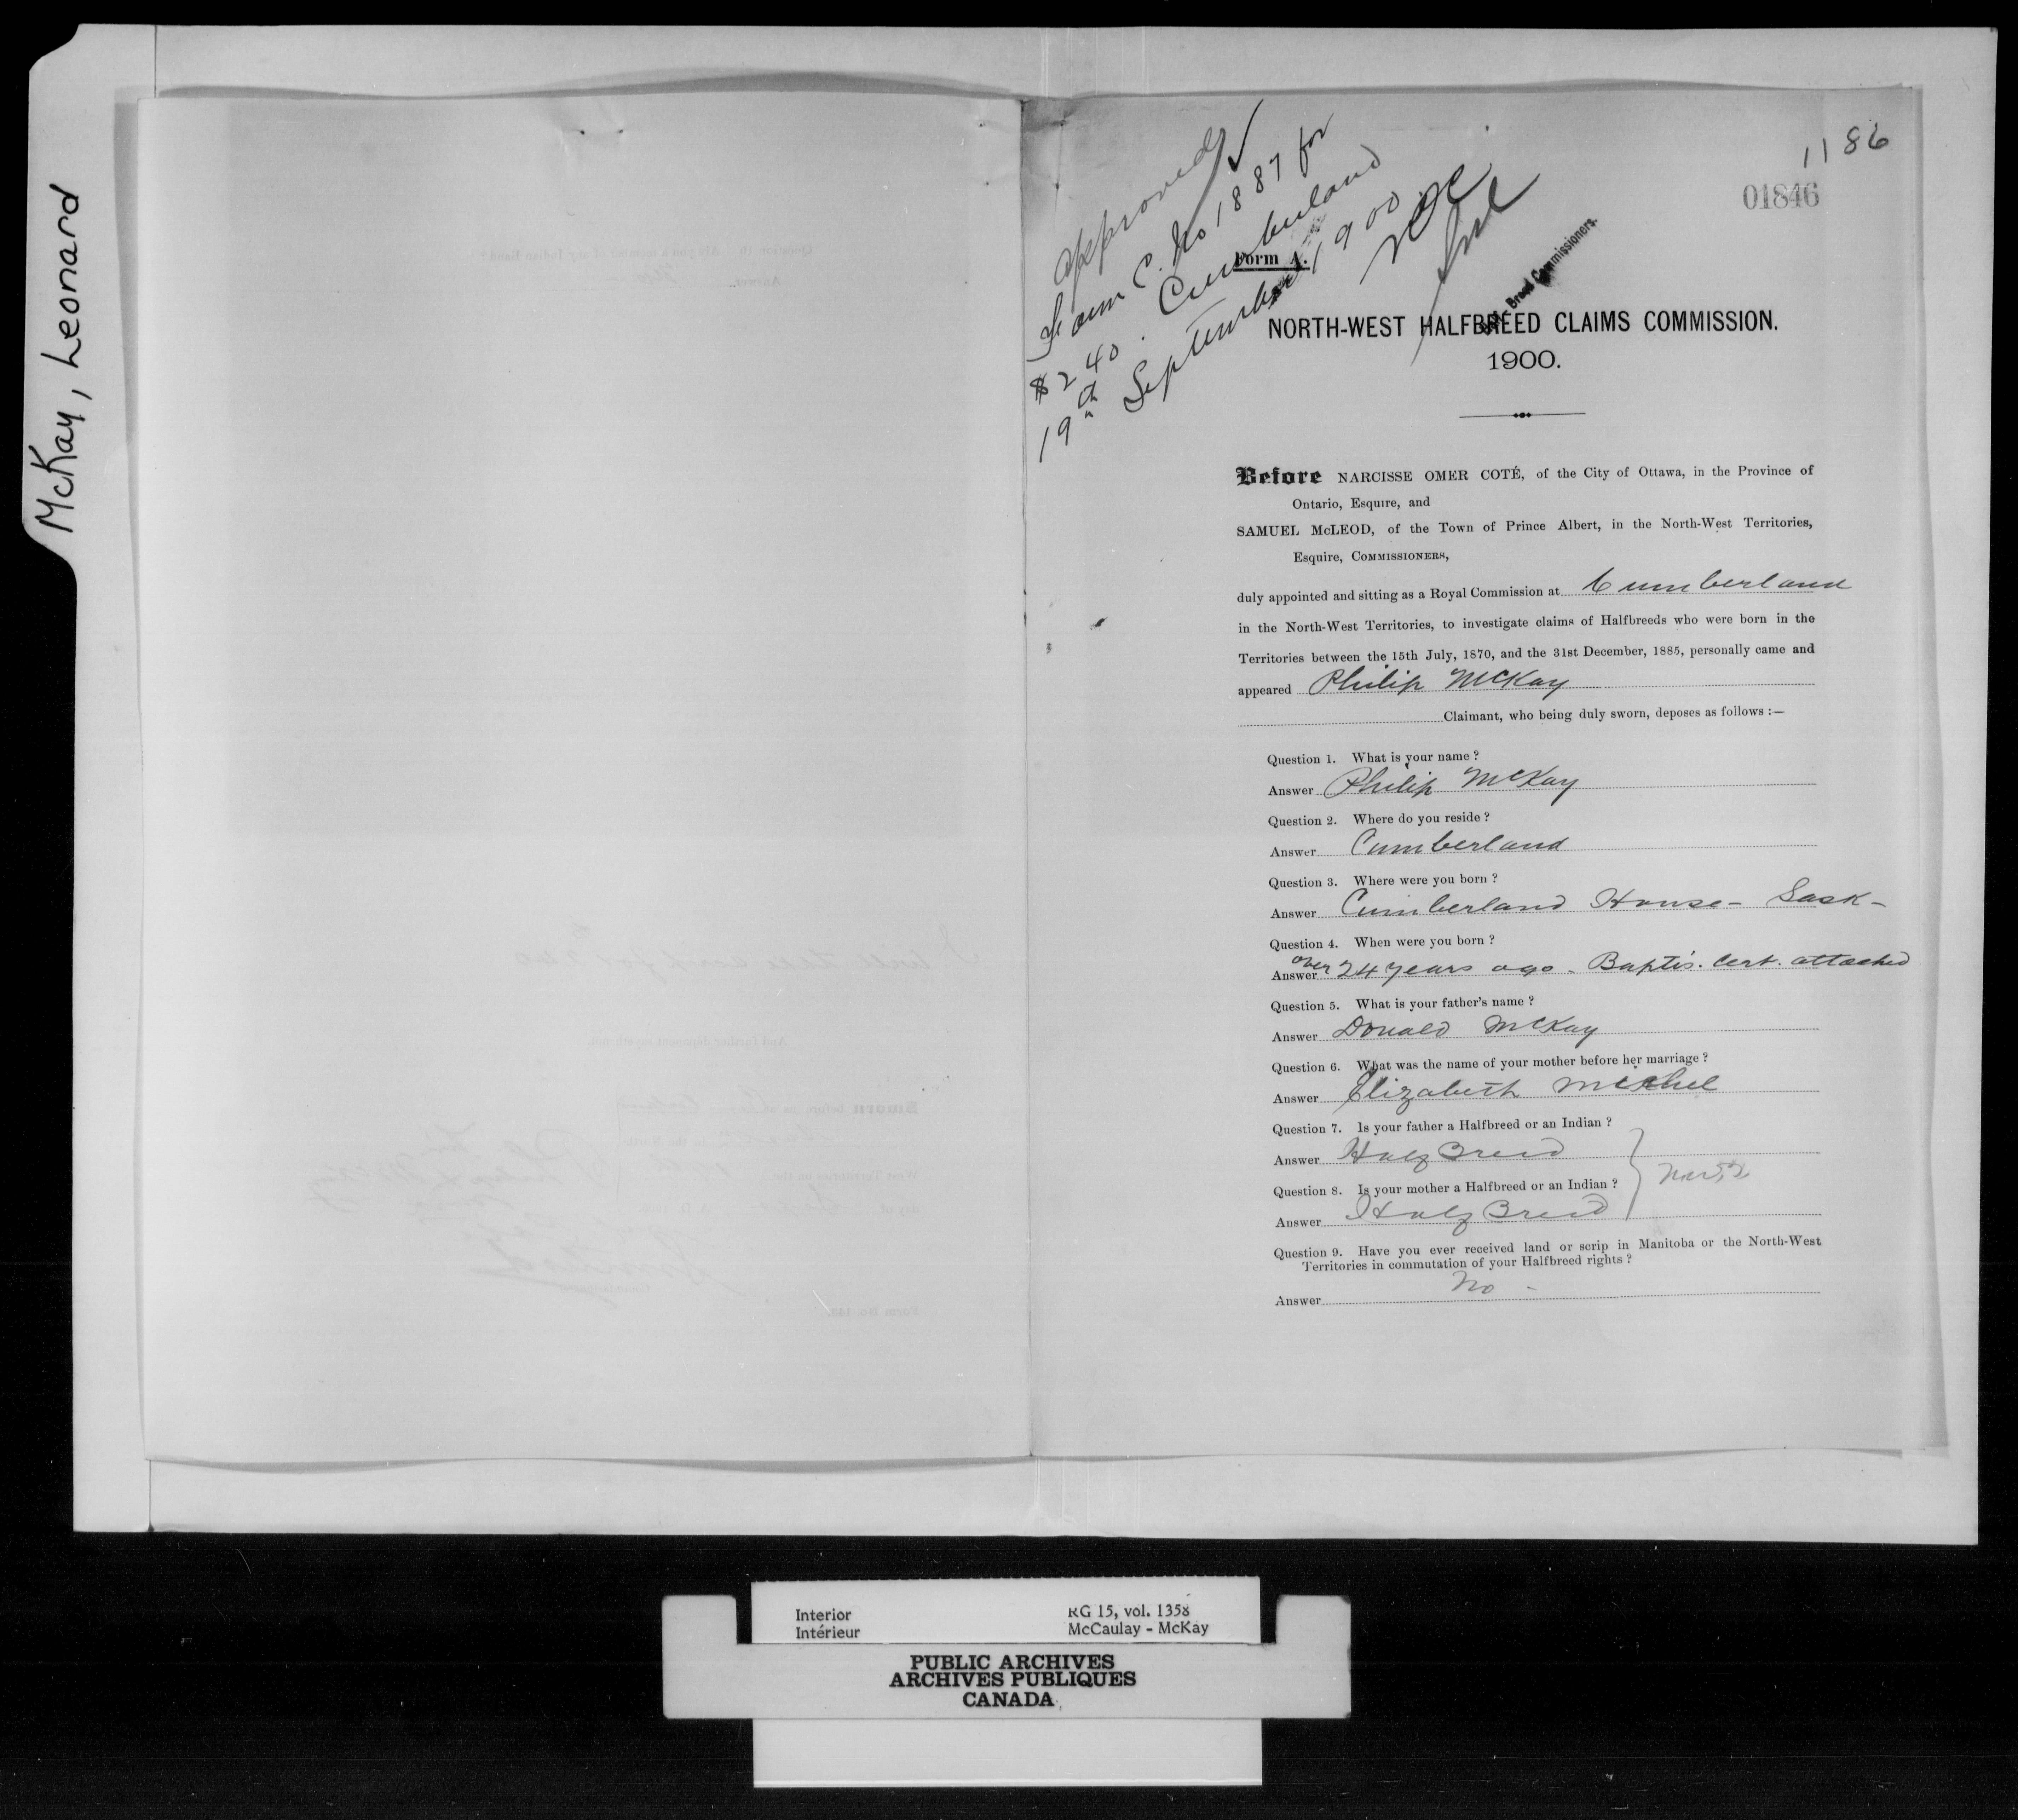 McKay, Leonard
1186
01846
Approved
Form C. No 1887 for
$240. Cumberland
19th September 1900
Form A.
Breed Commissioners.
NORTH-WEST HALFBREED CLAIMS COMMISSION.
1900.
Before NARCISSE OMER COTÉ, of the City of Ottawa, in the Province of
Ontario, Esquire, and
SAMUEL McLEOD, of the Town of Prince Albert, in the North-West Territories,
Esquire, COMMISSIONERS,
duly appointed and sitting as a Royal Commission at Cumberland
in the North-West Territories, to investigate claims of Halfbreeds who were born in the
Territories between the 15th July, 1870, and the 31st December, 1885, personally came and
appeared Philip McKay
Claimant, who being duly sworn, deposes as follows :—
Question 1. What is your name ?
Answer Philip McKay
Question 2. Where do you reside ?
Answer Cumberland
Question 3. Where were you born ?
Answer Cumberland House - Sask -
Question 4. When were you born ?
Answer over 24 years ago - Baptis. Cert. attached
Question 5. What is your father's name ?
Answer Donald McKay
Question 6. What was the name of your mother before her marriage ?
Answer Elizabeth
Question 7. Is your father a Halfbreed or an Indian ?
Answer Half Breed
Question 8. Is your mother a Halfbreed or an Indian ?
Answer Half Breed
Question 9. Have you ever received land or scrip in Manitoba or the North-West
Territories in commutation of your Halfbreed rights ?
Answer No -
Interior
Intérieur
RG 15, vol. 1358
McCaulay - McKay
PUBLIC ARCHIVES
ARCHIVES PUBLIQUES
CANADA